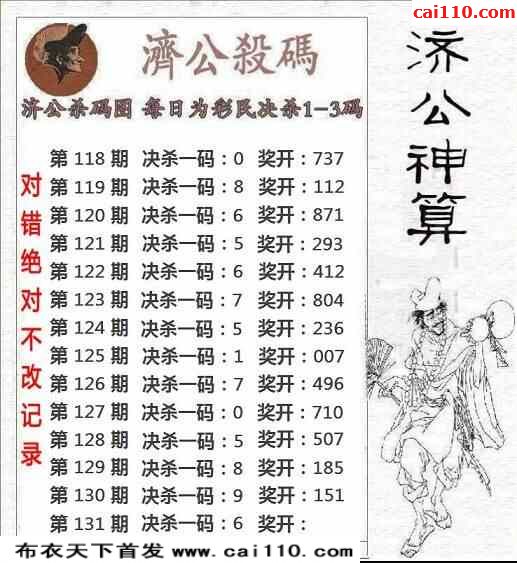 cai110.com
濟公殺碼
济公杀码图 每日为彩民决杀1-3码
济公神算
对错绝对不改记录
第 118 期 决杀一码：0 奖开：737
第 119 期 决杀一码：8 奖开：112
第 120 期 决杀一码：6 奖开：871
第 121 期 决杀一码：5 奖开：293
第 122 期 决杀一码：6 奖开：412
第 123 期 决杀一码：7 奖开：804
第 124 期 决杀一码：5 奖开：236
第 125 期 决杀一码：1 奖开：007
第 126 期 决杀一码：7 奖开：496
第 127 期 决杀一码：0 奖开：710
第 128 期 决杀一码：5 奖开：507
第 129 期 决杀一码：8 奖开：185
第 130 期 决杀一码：9 奖开：151
第 131 期 决杀一码：6 奖开：
布衣天下首发 www.cai110.com